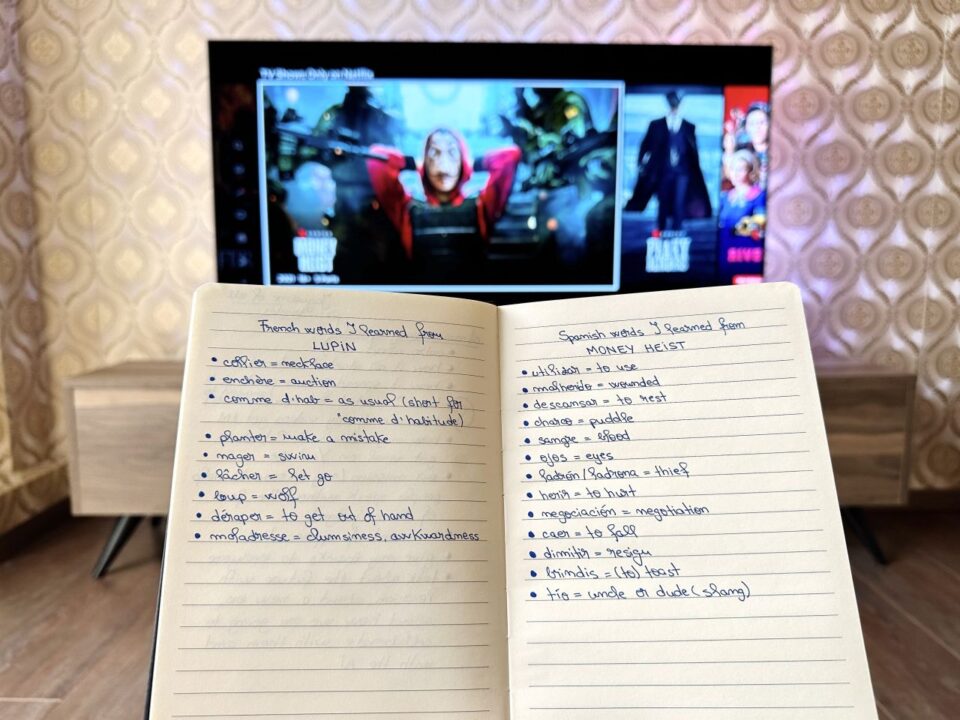 TV Shows Only on Netflix
MONEY
HEIST
PEAKY
BLINDERS
French words I learned from
LUPIN
• collier = necklace
• enchère = auction
• comme d'hab = as usual (short for
"comme d'habitude)
• planter = make a mistake
• nager = swim
• lâcher = let go
• loup = wolf
• déraper = to get out of hand
• maladresse = clumsiness, awkwardness
Spanish words I learned from
MONEY HEIST
• utilizar = to use
• malherido = wounded
• descansar = to rest
• charco = puddle
• sangre = blood
• ojos = eyes
• ladrón/ladrona = thief
• herir = to hurt
• negociación = negotiation
• caer = to fall
• dimitir = resign
• brindis = (to) toast
• tío = uncle or dude (slang)